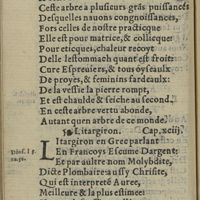 Cest arbre a plusieurs grãs puissances
Desquelles nauons congnoissances,
Fors celles de nostre practicque
Elle est pour matrice, & collicque:
Pour eticques, chaleur recoyt
Delle lestommach quant est froit:
Cure Espreuiers, & tous oyseaulx
De proyes, & feminins fardeaulx:
De la vessie la pierre rompt,
Et est chaulde & seiche au second.
En cest arbre vertu abonde,
Autant quen arbre de ce monde.
Litargiron. Cap. xciij.
Litargiron en Grec parlant
En Francoys Escume Dargent:
Et par aultre nom Molybdite,
Dicte Plombaire: aussy Christe,
Qui est interpreté Auree,
Meilleure & la plus estimee:
Diosc. l. 5.